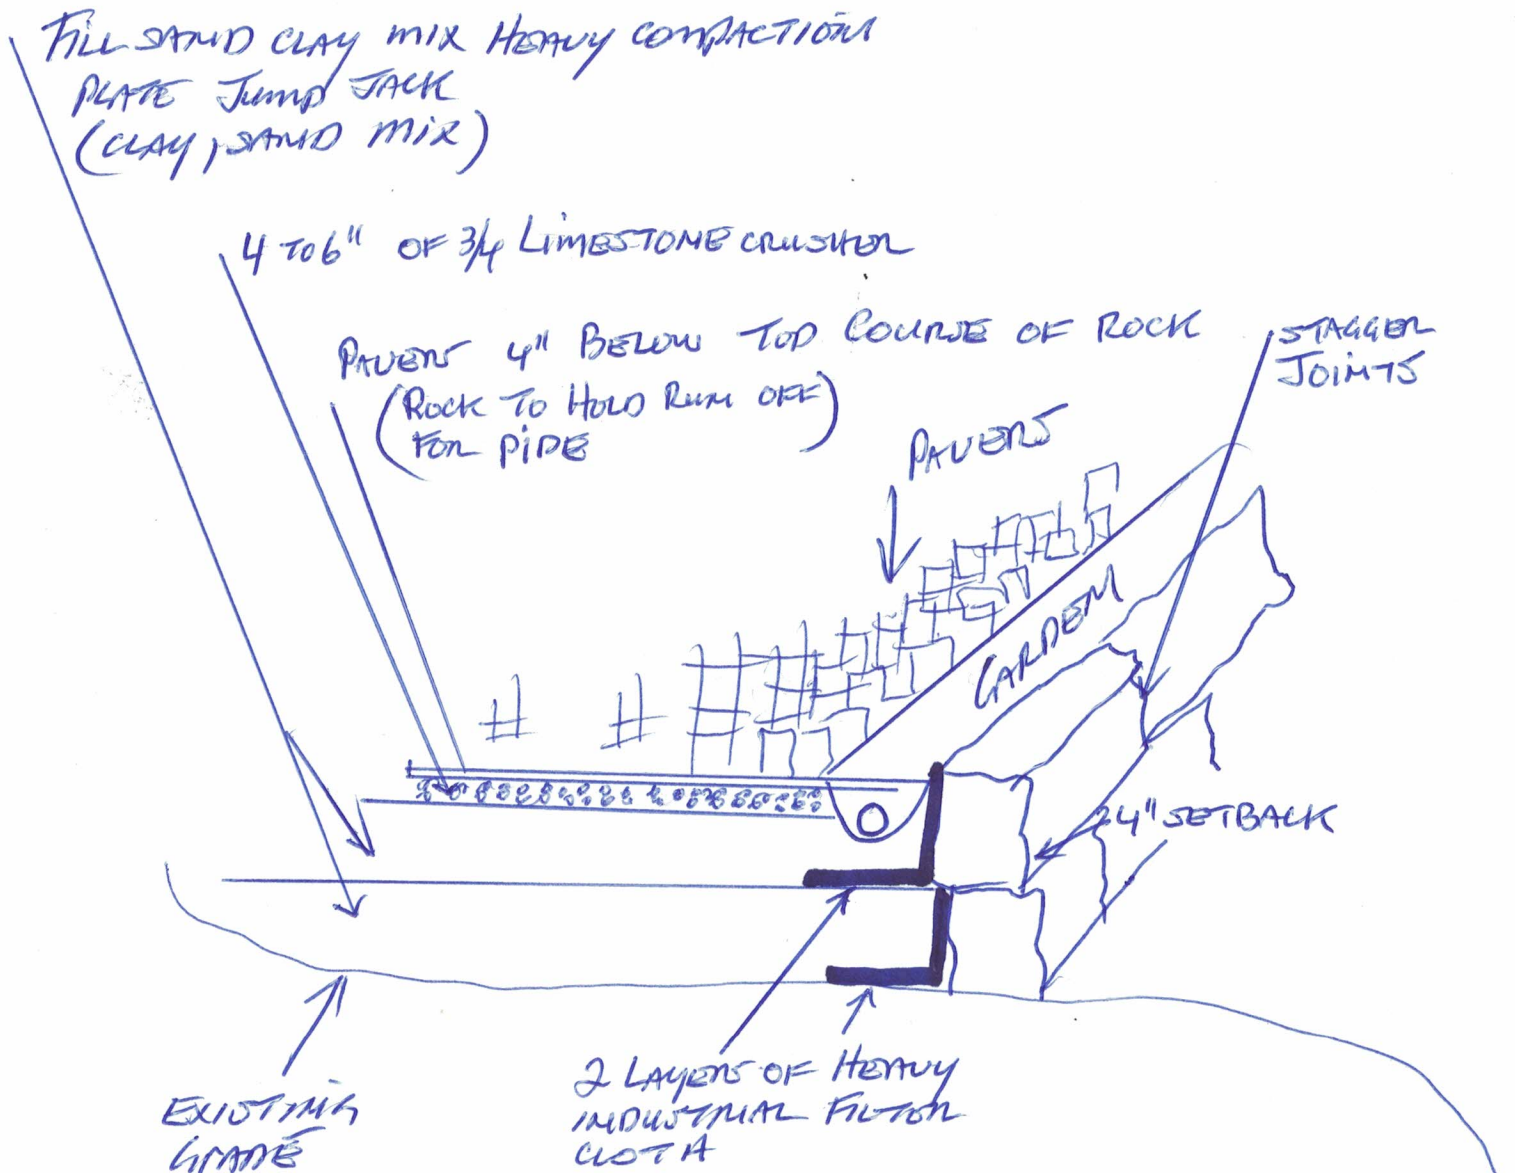 FILL SAND CLAY MIX HEAVY COMPACTION
PLATE JUMP JACK
(CLAY, SAND MIX)
4 TO 6" OF 3/4 LIMESTONE CRUSHER
PAVERS 4" BELOW TOP COURSE OF ROCK
(ROCK TO HOLD RUN OFF)
FOR PIPE
STAGGER
JOINTS
PAVERS
GARDEN
24" SETBACK
EXISTING
GRADE
2 LAYERS OF HEAVY
INDUSTRIAL FILTER
CLOTH